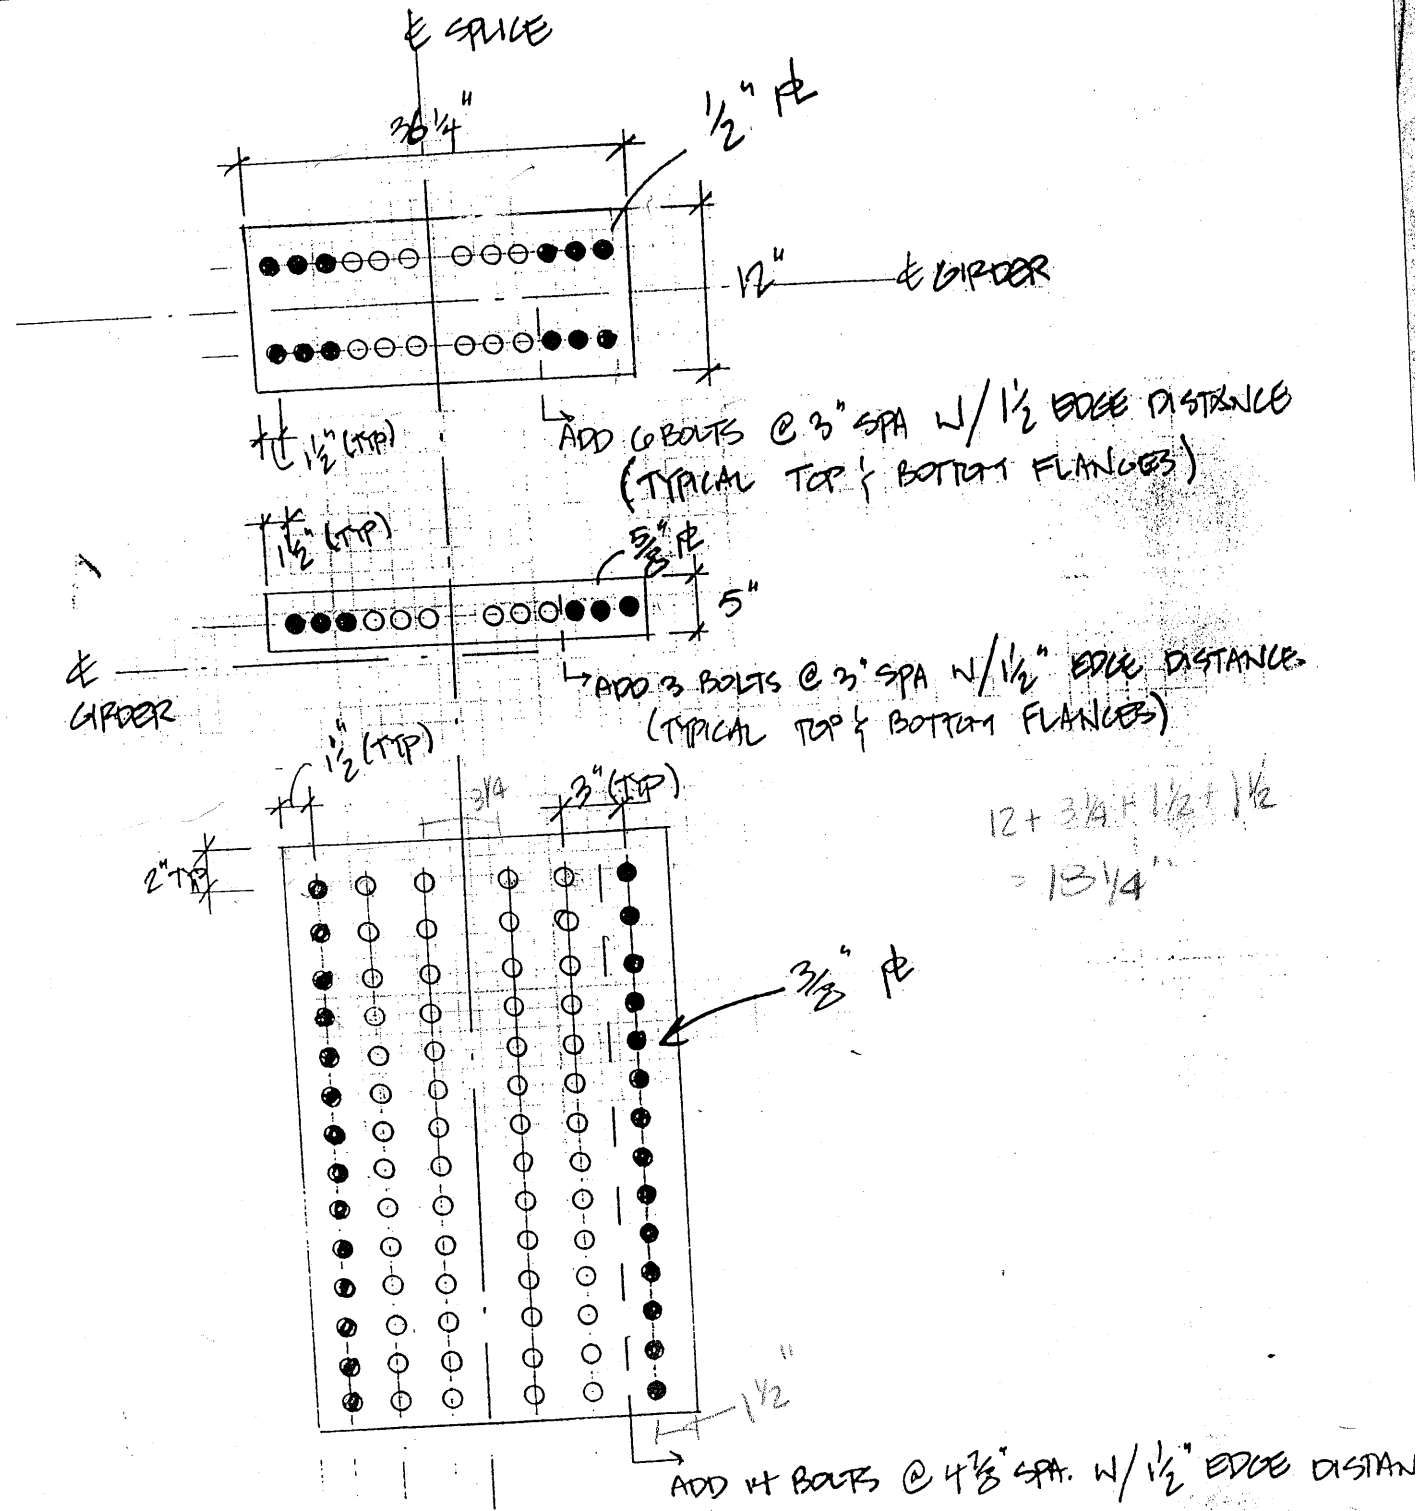 ℄ SPLICE
36 1/4"
1/2" ℄
12"
℄ GIRDER
1 1/2" (TYP)
ADD 6 BOLTS @ 3" SPA W/ 1 1/2 EDGE DISTANCE
(TYPICAL TOP & BOTTOM FLANGES)
1 1/2" (TYP)
5/8" ℄
5"
℄
GIRDER
ADD 3 BOLTS @ 3" SPA W/ 1 1/2" EDGE DISTANCE.
(TYPICAL TOP & BOTTOM FLANGES)
1 1/2" (TYP)
3 1/4
3" (TYP)
12 + 3 1/4 + 1 1/2 + 1 1/2
= 18 1/4"
2" TYP
3/8" ℄
1 1/2"
ADD 14 BOLTS @ 4 7/8" SPA. W/ 1 1/2" EDGE DISTAN